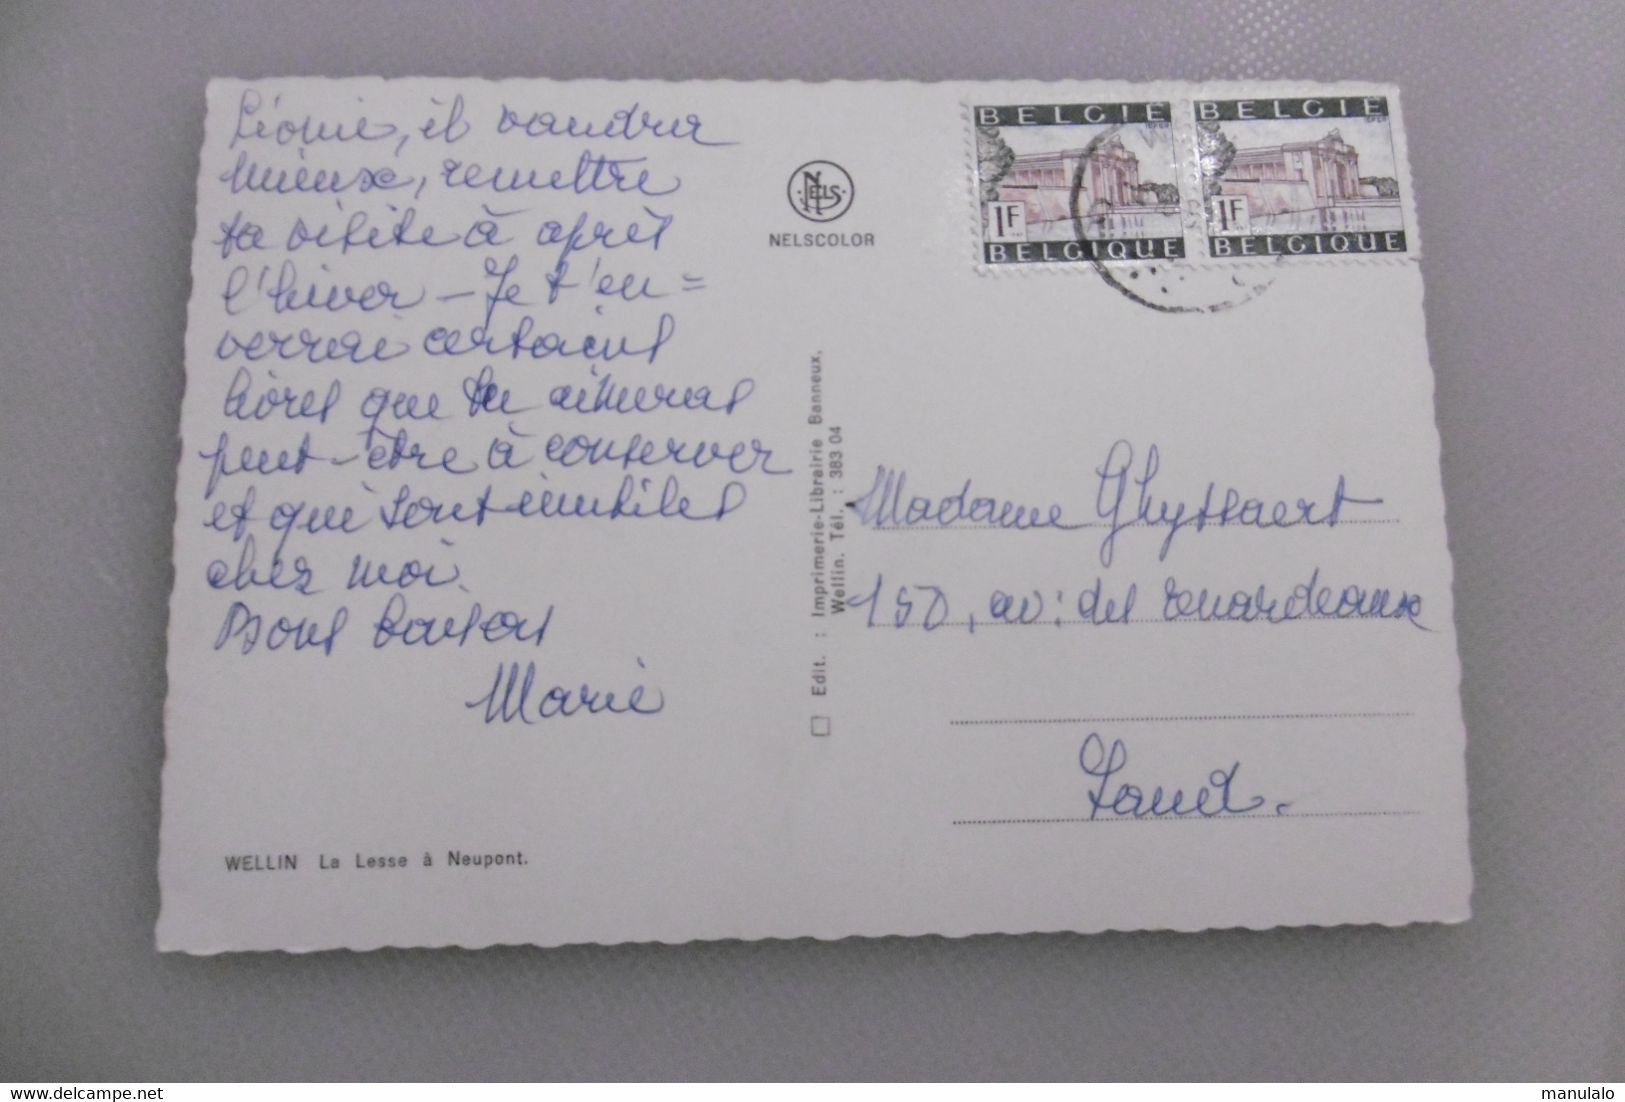 Léonie, il vaudra
mieux, remettre
ta visite à après
l'hiver - Je t'en=
verrai certains
livres que tu aimeras
peut-être à conserver
et qui sont inutiles
chez moi.
Bons baisers
Marie
WELLIN La Lesse à Neupont.
NELS
NELSCOLOR
Edit. : Imprimerie-Librairie Banneux,
Wellin. Tél. : 383 04
BELGIË
1F
BELGIQUE
BELGIË
1F
BELGIQUE
Madame Ghyssaert
150, av: des Renardeaux
delcampe.net
manulalo